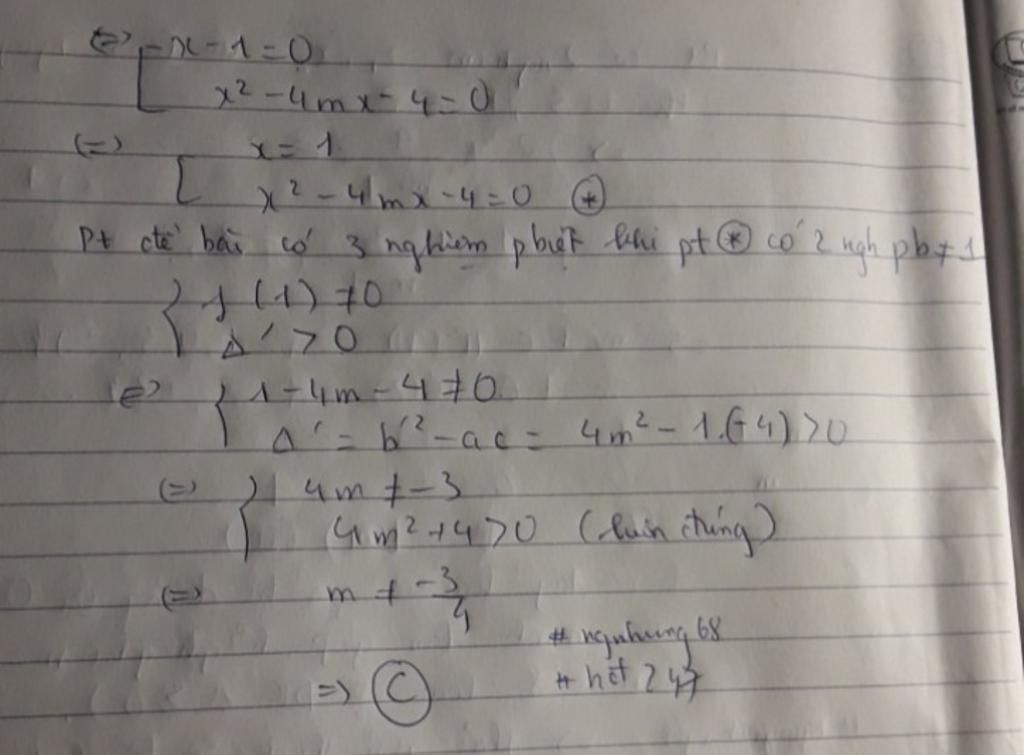 ⇔ [ x - 1 = 0
x² - 4mx - 4 = 0
(=) [ x = 1
x² - 4mx - 4 = 0 (*)
Pt đề bài có 3 nghiệm pbiệt khi pt (*) có 2 ngh pb ≠ 1
{ f(1) ≠ 0
Δ' > 0
⇔ { 1 - 4m - 4 ≠ 0
Δ' = b'² - ac = 4m² - 1.(-4) > 0
(=) { 4m ≠ -3
4m² + 4 > 0 (luôn đúng)
(=) m ≠ -3/4
# ngnhung68
=> (C) # hết 247